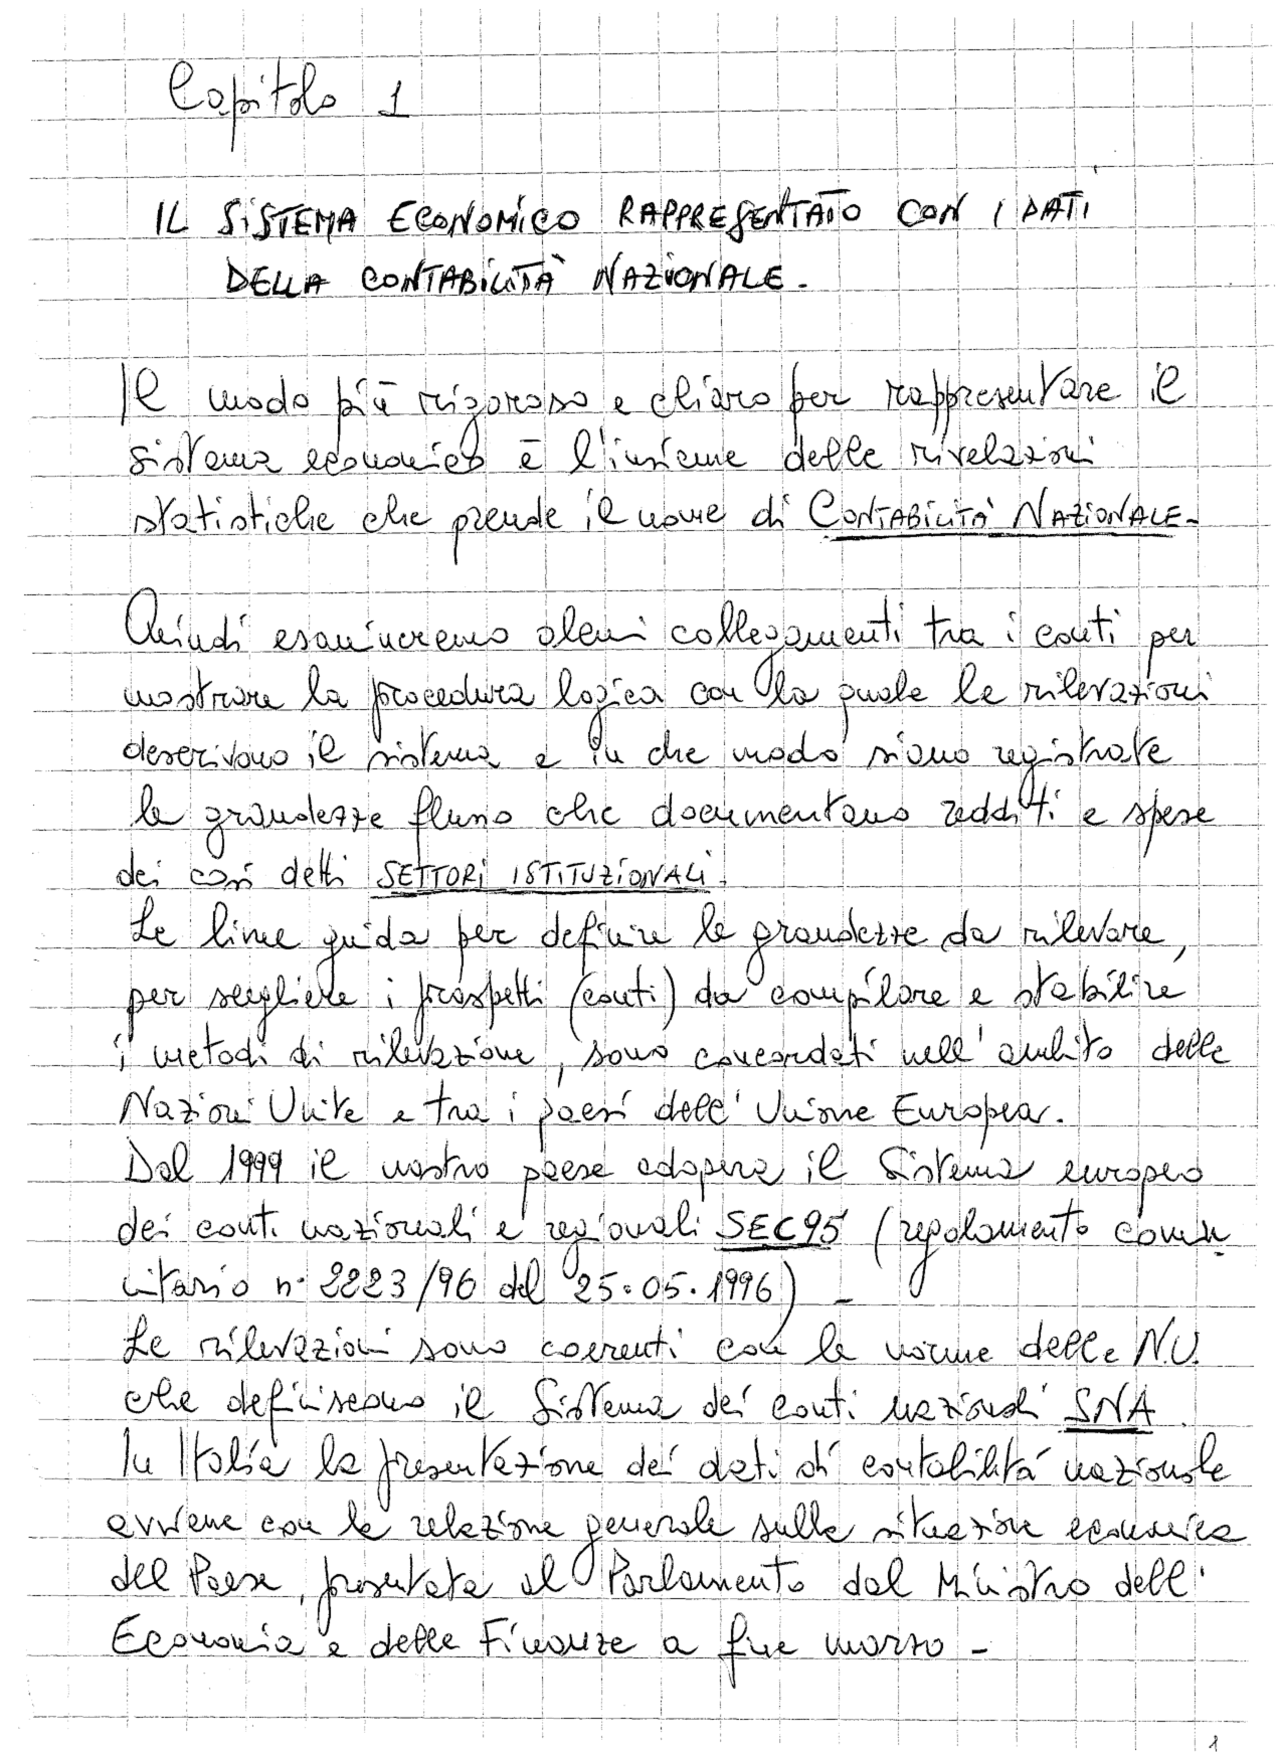 Capitolo 1
IL SISTEMA ECONOMICO RAPPRESENTATO CON I DATI
DELLA CONTABILITÀ NAZIONALE.
Il modo più rigoroso e chiaro per rappresentare il
sistema economico è l'insieme delle rivelazioni
statistiche che prende il nome di CONTABILITÀ NAZIONALE.
Quindi esamineremo alcuni collegamenti tra i conti per
mostrare la procedura logica con la quale le rilevazioni
descrivono il sistema e in che modo siano registrate
le grandezze flusso che documentano redditi e spese
dei così detti SETTORI ISTITUZIONALI.
Le linee guida per definire le grandezze da rilevare,
per scegliere i prospetti (conti) da compilare e stabilire
i metodi di rilevazione, sono concordati nell'ambito delle
Nazioni Unite e tra i paesi dell'Unione Europea.
Dal 1999 il nostro paese adopera il Sistema europeo
dei conti nazionali e regionali SEC95 (regolamento comu
nitario n. 2223/96 del 25.05.1996) -
Le rilevazioni sono coerenti con le norme delle N.U.
che definiscono il Sistema dei conti nazionali SNA.
In Italia la presentazione dei dati di contabilità nazionale
avviene con la relazione generale sulla situazione economica
del Paese, presentata al Parlamento dal Ministro dell'
Economia e delle Finanze a fine marzo -
1